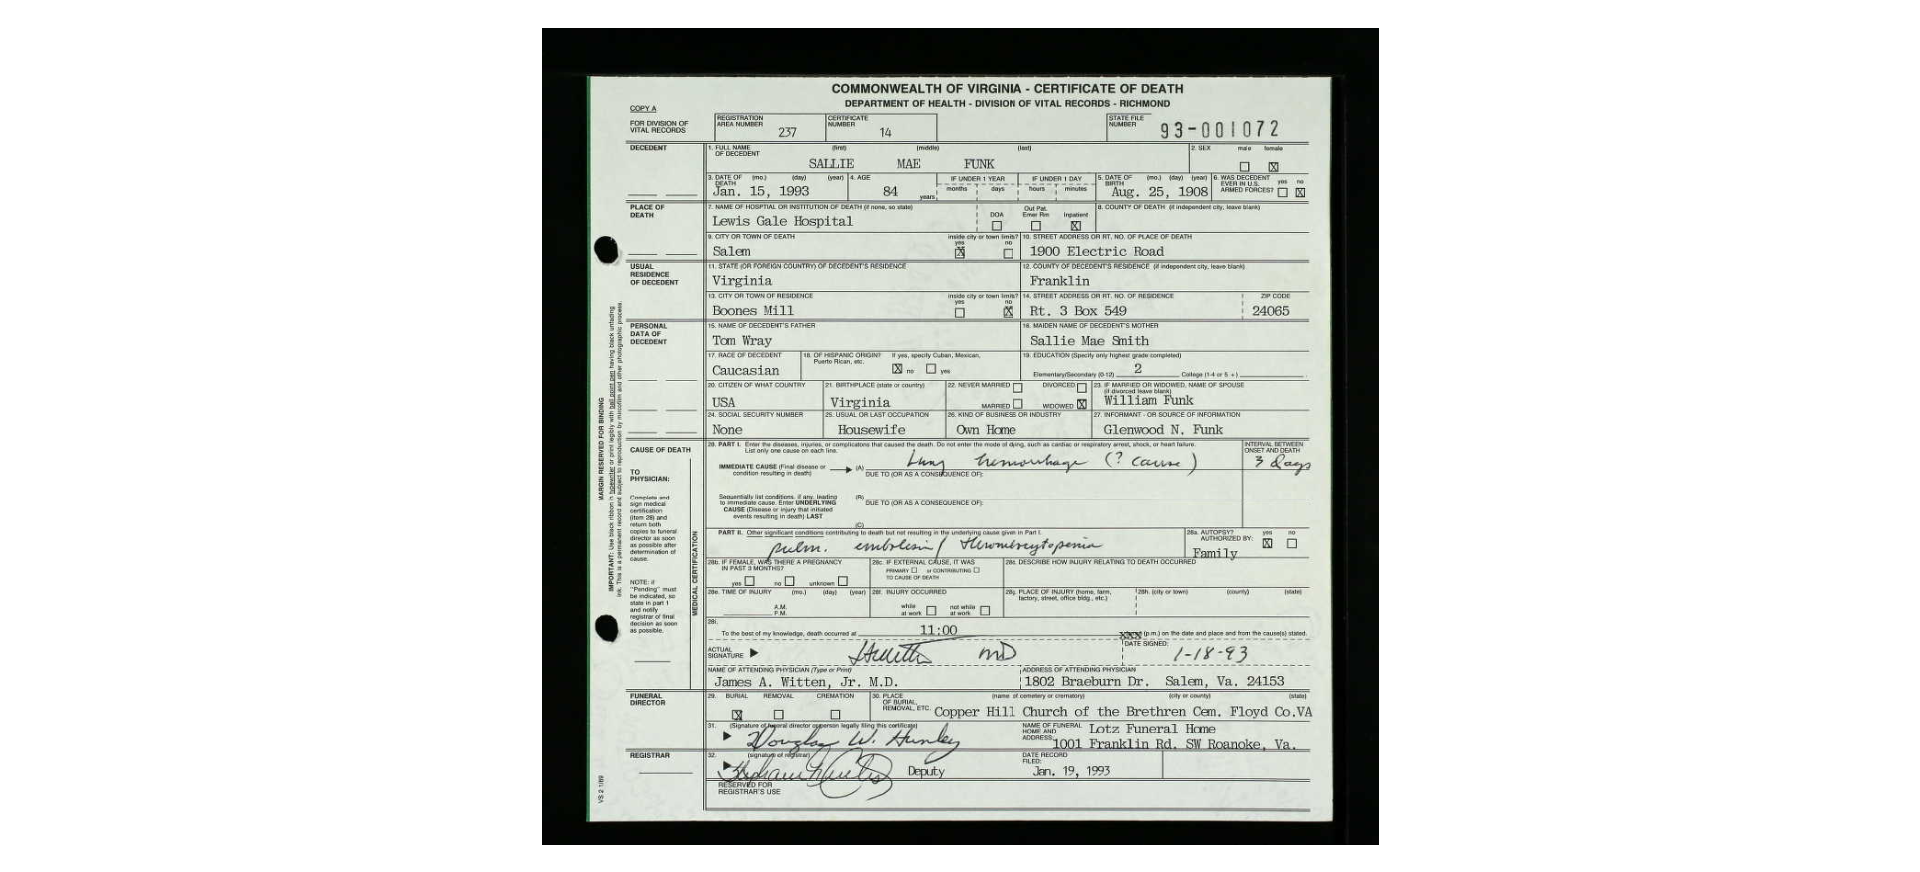 COMMONWEALTH OF VIRGINIA - CERTIFICATE OF DEATH
DEPARTMENT OF HEALTH - DIVISION OF VITAL RECORDS - RICHMOND
COPY A
FOR DIVISION OF VITAL RECORDS
REGISTRATION AREA NUMBER 237
CERTIFICATE NUMBER 14
STATE FILE NUMBER 93-001072
DECEDENT
1. FULL NAME OF DECEDENT (first) (middle) (last)
SALLIE MAE FUNK
2. SEX male female X
3. DATE OF DEATH (mo.) (day) (year) Jan. 15, 1993
4. AGE 84 years
IF UNDER 1 YEAR months days
IF UNDER 1 DAY hours minutes
5. DATE OF BIRTH (mo.) (day) (year) Aug. 25, 1908
6. WAS DECEDENT EVER IN U.S. ARMED FORCES? yes no X
PLACE OF DEATH
7. NAME OF HOSPITAL OR INSTITUTION OF DEATH (if none, so state)
Lewis Gale Hospital
DOA Out Pat. Emer Rm Inpatient X
8. COUNTY OF DEATH (if independent city, leave blank)
9. CITY OR TOWN OF DEATH inside city or town limits? yes X no
Salem
10. STREET ADDRESS OR RT. NO. OF PLACE OF DEATH
1900 Electric Road
USUAL RESIDENCE OF DECEDENT
11. STATE (OR FOREIGN COUNTRY) OF DECEDENT'S RESIDENCE
Virginia
12. COUNTY OF DECEDENT'S RESIDENCE (if independent city, leave blank)
Franklin
13. CITY OR TOWN OF RESIDENCE inside city or town limits? yes no X
Boones Mill
14. STREET ADDRESS OR RT. NO. OF RESIDENCE ZIP CODE
Rt. 3 Box 549 24065
PERSONAL DATA OF DECEDENT
15. NAME OF DECEDENT'S FATHER
Tom Wray
16. MAIDEN NAME OF DECEDENT'S MOTHER
Sallie Mae Smith
17. RACE OF DECEDENT
Caucasian
18. OF HISPANIC ORIGIN? If yes, specify Cuban, Mexican, Puerto Rican, etc. X no yes
19. EDUCATION (Specify only highest grade completed)
Elementary/Secondary (0-12) 2 College (1-4 or 5 +)
20. CITIZEN OF WHAT COUNTRY
USA
21. BIRTHPLACE (state or country)
Virginia
22. NEVER MARRIED DIVORCED MARRIED WIDOWED X
23. IF MARRIED OR WIDOWED, NAME OF SPOUSE (if divorced leave blank)
William Funk
24. SOCIAL SECURITY NUMBER
None
25. USUAL OR LAST OCCUPATION
Housewife
26. KIND OF BUSINESS OR INDUSTRY
Own Home
27. INFORMANT - OR SOURCE OF INFORMATION
Glenwood N. Funk
CAUSE OF DEATH
TO PHYSICIAN:
Complete and sign medical certification (item 28) and return both copies to funeral director as soon as possible after determination of cause.
NOTE: if "Pending" must be indicated, so state in part 1 and notify registrar of final decision as soon as possible.
MEDICAL CERTIFICATION
28. PART I. Enter the diseases, injuries, or complications that caused the death. Do not enter the mode of dying, such as cardiac or respiratory arrest, shock, or heart failure. List only one cause on each line.
INTERVAL BETWEEN ONSET AND DEATH
IMMEDIATE CAUSE (Final disease or condition resulting in death) (A) Lung hemorrhage (? cause) 3 days
DUE TO (OR AS A CONSEQUENCE OF):
Sequentially list conditions, if any, leading to immediate cause. Enter UNDERLYING CAUSE (Disease or injury that initiated events resulting in death) LAST
(B)
DUE TO (OR AS A CONSEQUENCE OF):
(C)
PART II. Other significant conditions contributing to death but not resulting in the underlying cause given in Part I.
pulm. embolism / thrombocytopenia
28a. AUTOPSY? AUTHORIZED BY: yes X no
Family
28b. IF FEMALE, WAS THERE A PREGNANCY IN PAST 3 MONTHS? yes no unknown
28c. IF EXTERNAL CAUSE, IT WAS PRIMARY or CONTRIBUTING TO CAUSE OF DEATH
28d. DESCRIBE HOW INJURY RELATING TO DEATH OCCURRED
28e. TIME OF INJURY (mo.) (day) (year) A.M. P.M.
28f. INJURY OCCURRED while at work not while at work
28g. PLACE OF INJURY (home, farm, factory, street, office bldg., etc.)
28h. (city or town) (county) (state)
28i.
To the best of my knowledge, death occurred at 11:00 (p.m.) on the date and place and from the cause(s) stated.
ACTUAL SIGNATURE MD
DATE SIGNED: 1-18-93
NAME OF ATTENDING PHYSICIAN (Type or Print)
James A. Witten, Jr. M.D.
ADDRESS OF ATTENDING PHYSICIAN
1802 Braeburn Dr. Salem, Va. 24153
FUNERAL DIRECTOR
29. BURIAL X REMOVAL CREMATION
30. PLACE OF BURIAL, REMOVAL, ETC. (name of cemetery or crematory) (city or county) (state)
Copper Hill Church of the Brethren Cem. Floyd Co.VA
31. (Signature of funeral director or person legally filing this certificate)
Douglas W. Hunley
NAME OF FUNERAL HOME AND ADDRESS: Lotz Funeral Home
1001 Franklin Rd. SW Roanoke, Va.
REGISTRAR
32. (signature of registrar)
Deputy
DATE RECORD FILED: Jan. 19, 1993
RESERVED FOR REGISTRAR'S USE
VS 2 1/89
MARGIN RESERVED FOR BINDING
IMPORTANT: Use black ribbon in typewriter or print legibly with ball point pen having black unfading ink. This is a permanent record and subject to reproduction by microfilm and other photographic process.